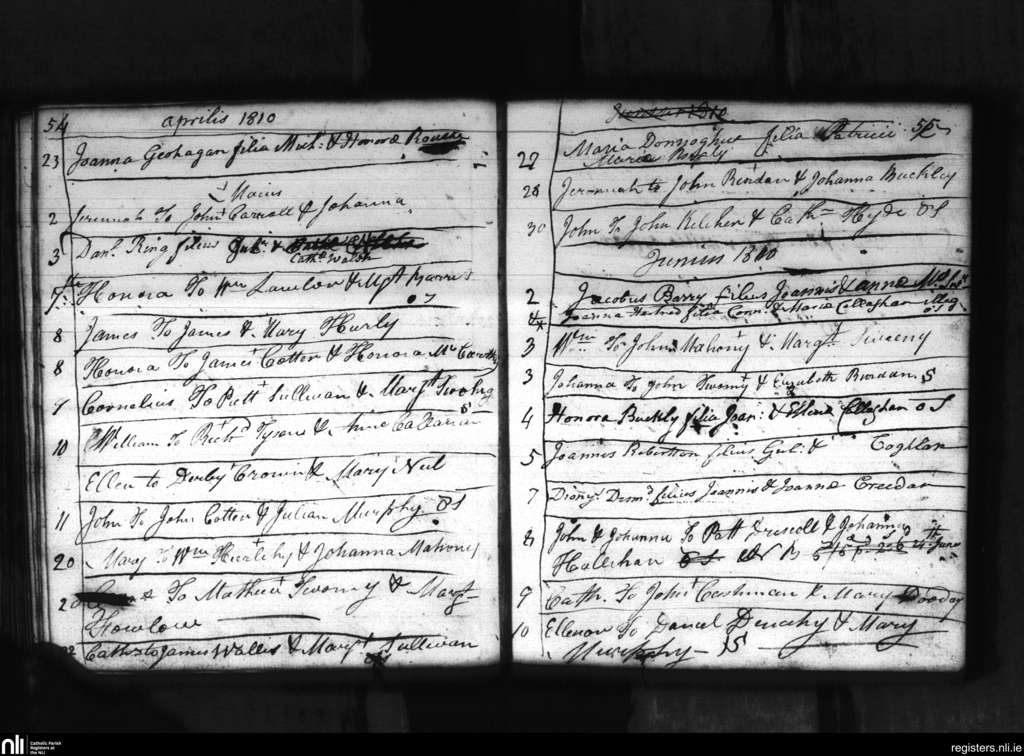 54 aprilis 1810
23 Joanna Geohagan filia Mich: & Honoræ
Maius
2 Jeremiah To John Carroll & Johanna
3 Danl. Ring filius Gul: &
Cath: Walsh
7th Honora To Wm Lawlow & Mgt Barris
8 James To James & Mary Hurly
8 Honora To James Cotter & Honora Mc Carthy
9 Cornelius To Patt Sullivan & Margt Twohig
10 William To Richd Tyson & Anne
Ellen to Derby Crowin & Mary Neil
11 John To John Cotter & Julian Murphy OS
20 Mary To Wm Healehy & Johanna Mahony
20 To Mathew Twomy & Margt
Howlow
Cathe to James Wallis & Margt Sullivan
55
27 Maria Donnoghue filia Patricii
Maria
28 Jeremiah to John Rindan & Johanna Buckley
30 John To John Kelcher & Cathn Hyde OS
Junius 1810
2 Jacobus Barry filius Joannis & annæ
Joanna filia Conn: & Mariæ Callaghan
3 Wm To John Mahony & Margt Sweeny
3 Johanna To John Twomy & Elizabeth Burdan S
4 Honora Buckly filia Joan: & Ellenæ Callaghan OS
5 Joannes Robertson filius Gul: & Coghlan
7 Dionys: filius Joannis & Joannæ Creedan
8 John & Johanna To Patt Driscoll & Johanna
Haleshan
9 Cath. To John Cashman & Mary Dooday
10 Ellenor To Daniel Denahy & Mary
Murphy S
nli
Catholic Parish
Registers at
the NLI
registers.nli.ie